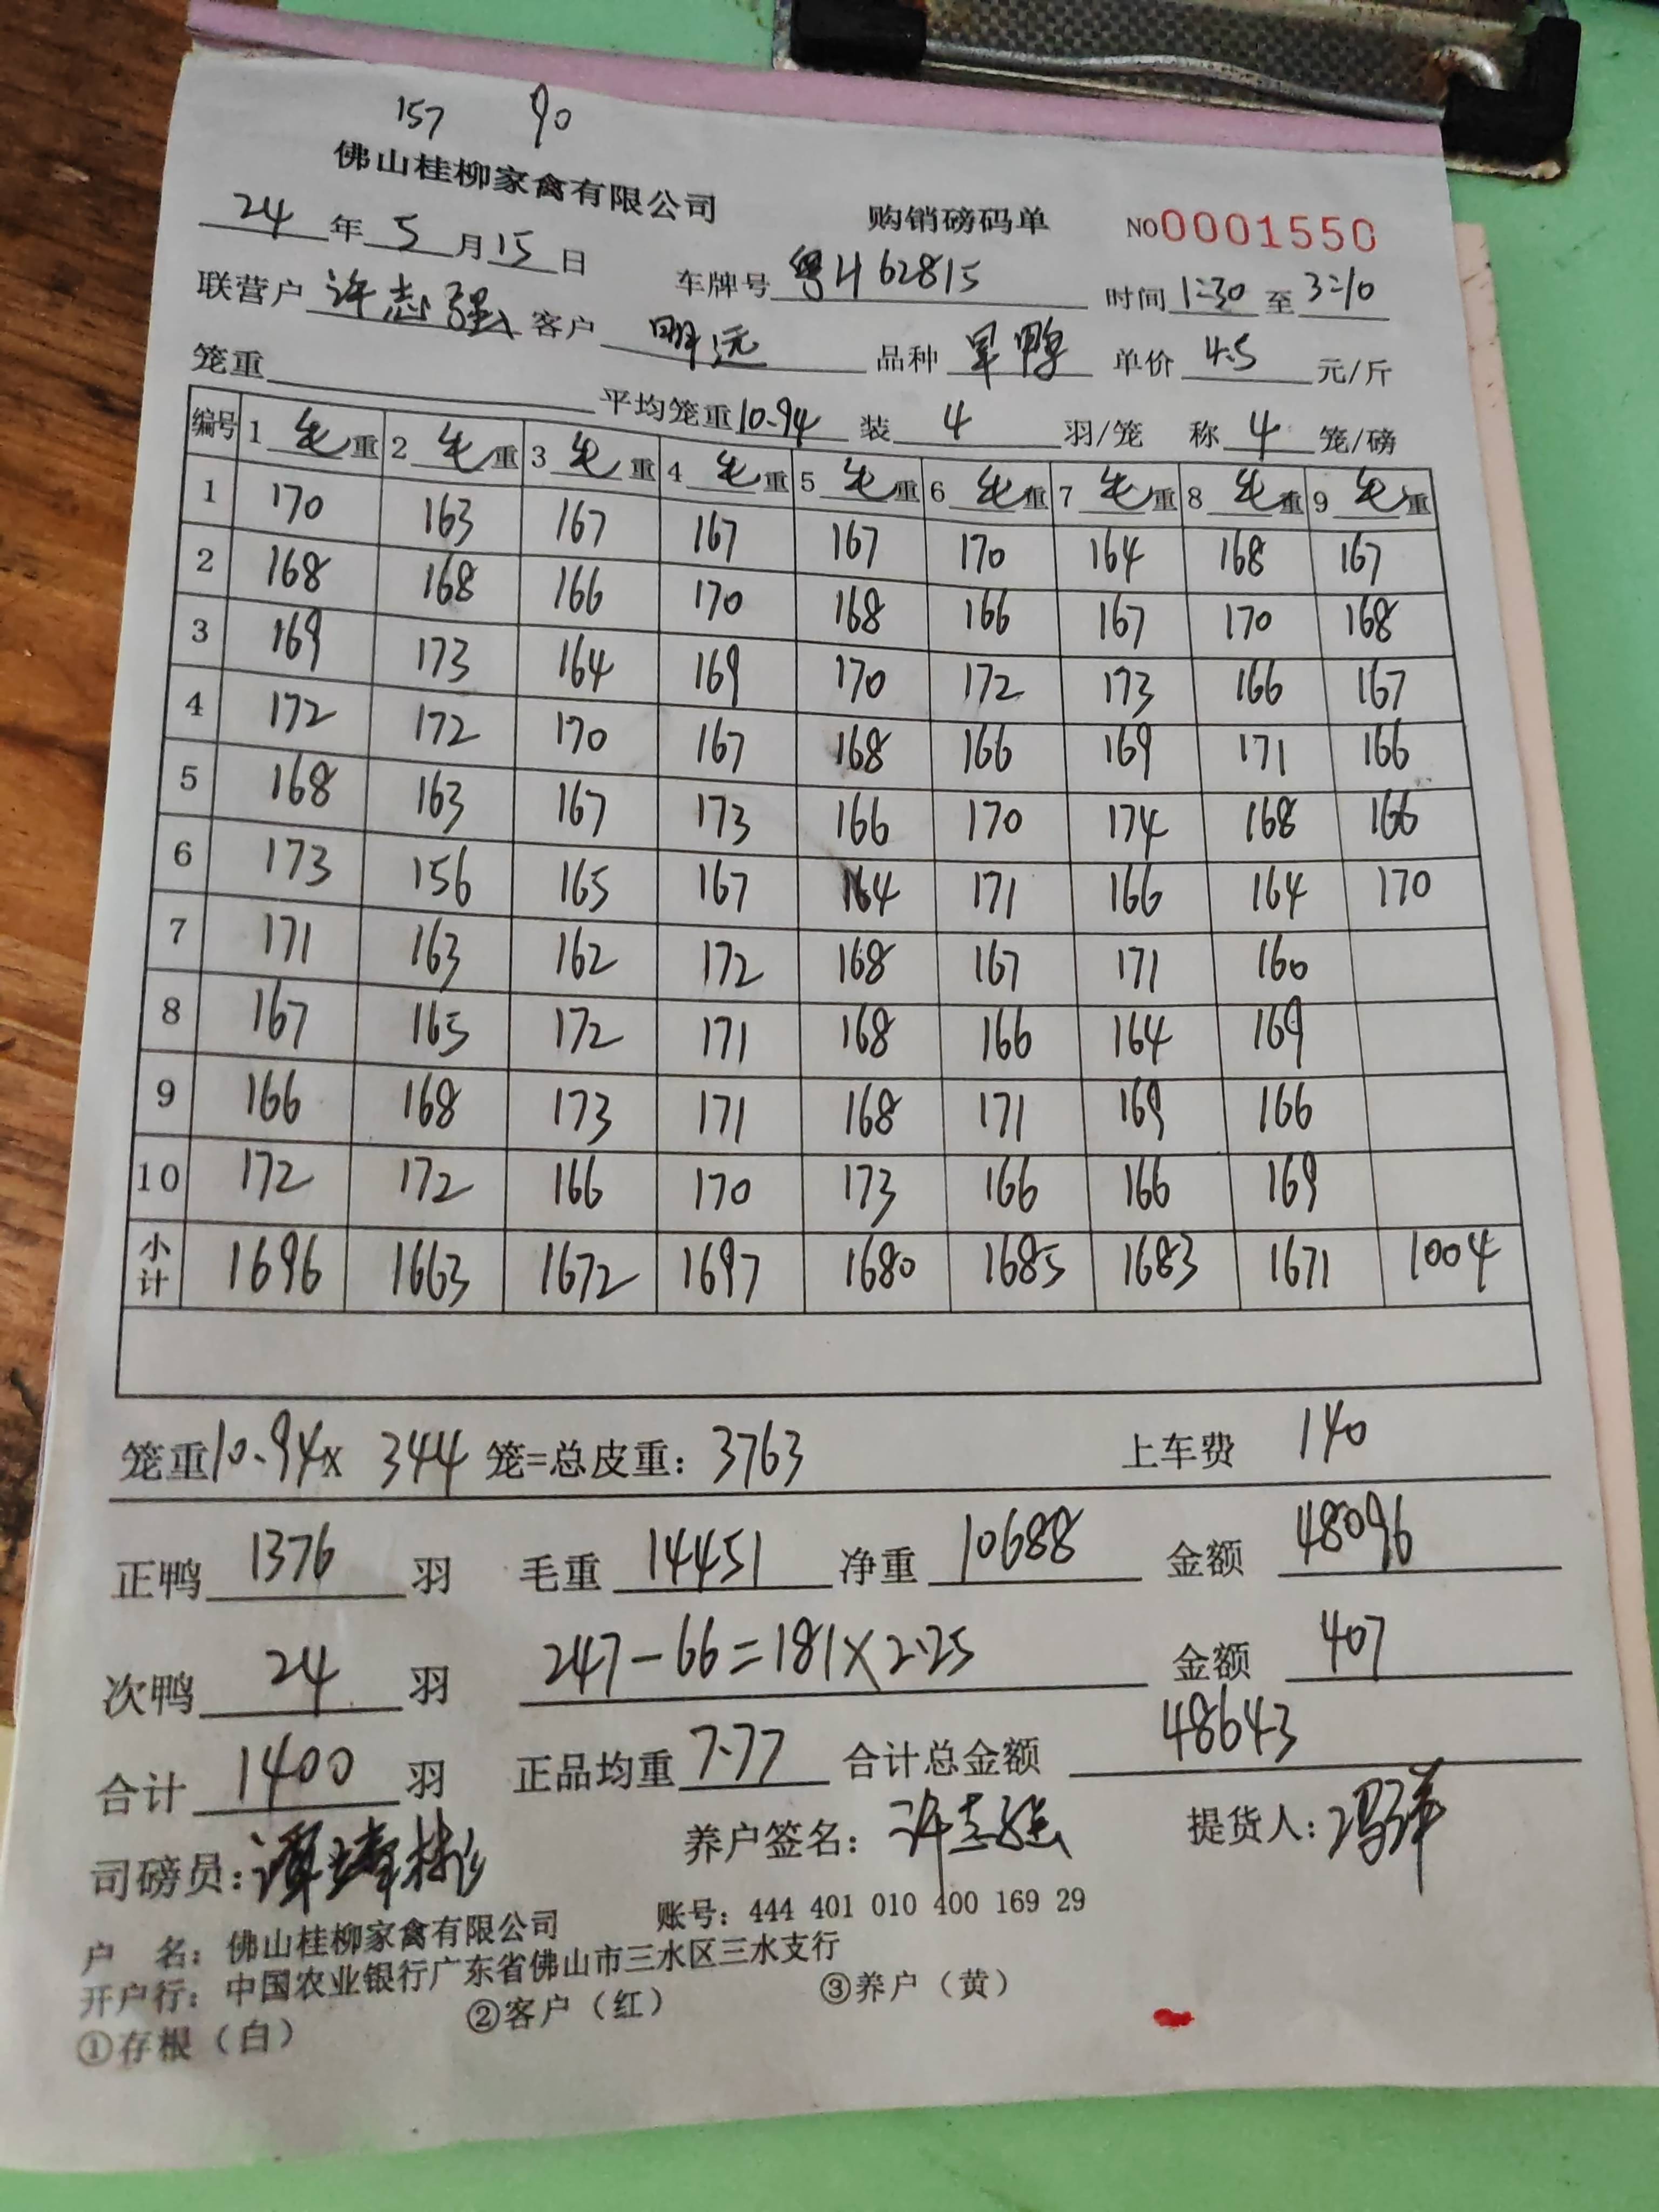 157 90
佛山桂柳家禽有限公司 购销磅码单 NO0001550
24年5月15日 车牌号粤H62815 时间1:30至3:10
联营户许志强客户明远 品种旱鸭 单价4.5元/斤
笼重 平均笼重10.94 装4羽/笼 称4笼/磅
编号 1毛重 2毛重 3毛重 4毛重 5毛重 6毛重 7毛重 8毛重 9毛重
1 170 163 167 167 167 170 164 168 167
2 168 168 166 170 168 166 167 170 168
3 169 173 164 169 170 172 173 166 167
4 172 172 170 167 168 166 169 171 166
5 168 163 167 173 166 170 174 168 166
6 173 156 165 167 164 171 166 164 170
7 171 163 162 172 168 167 171 160
8 167 165 172 171 168 166 164 169
9 166 168 173 171 168 171 169 166
10 172 172 166 170 173 166 166 169
小计 1696 1663 1672 1697 1680 1685 1683 1671 1004
笼重10.94x 344笼=总皮重：3763 上车费 140
正鸭1376羽 毛重14451净重10688 金额48096
次鸭24羽 247-66=181×2.25 金额407
合计1400羽 正品均重7.77 合计总金额48643
司磅员： 养户签名：许志强 提货人：
户 名：佛山桂柳家禽有限公司 账号：444 401 010 400 169 29
开户行：中国农业银行广东省佛山市三水区三水支行
①存根（白） ②客户（红） ③养户（黄）